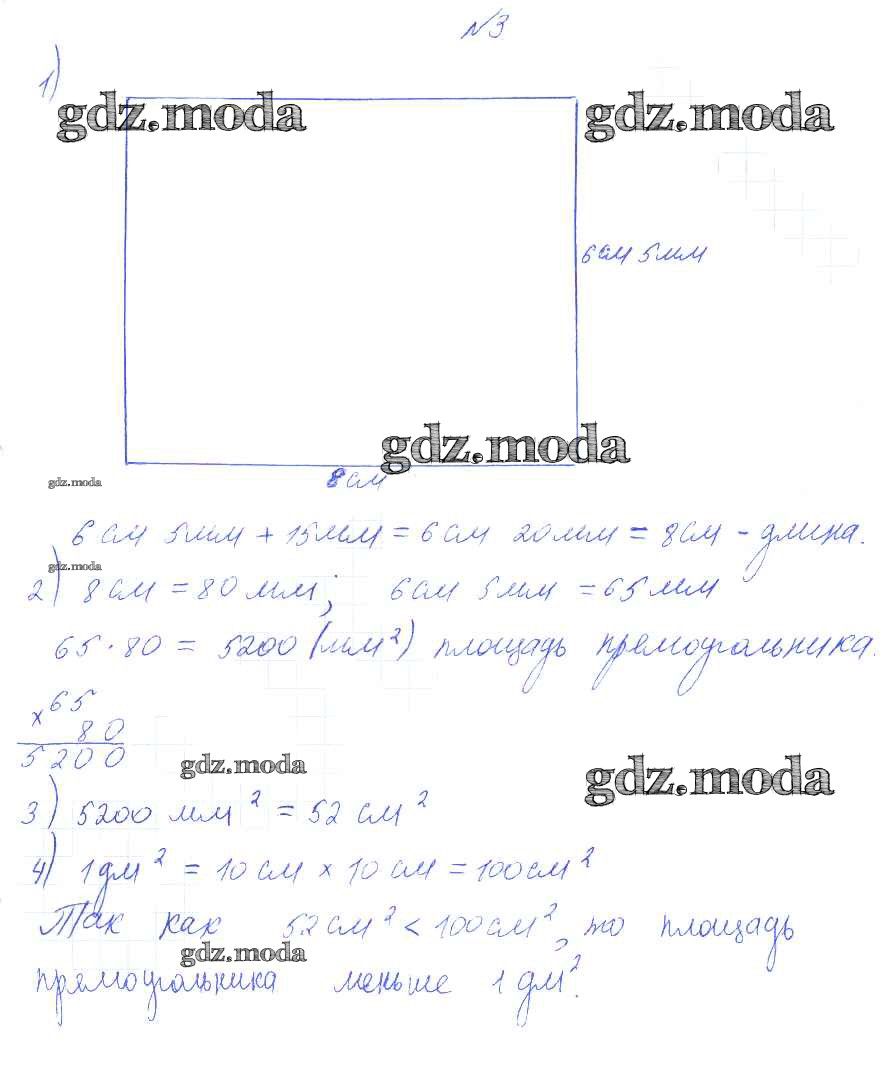 №3
1)
gdz.moda gdz.moda
6см 5мм
gdz.moda
gdz.moda
8см
6см 5мм + 15мм = 6см 20мм = 8см - длина.
gdz.moda
2) 8см = 80мм; 6см 5мм = 65мм
65 · 80 = 5200 (мм²) площадь прямоугольника.
× 65
80
5200
gdz.moda gdz.moda
3) 5200 мм² = 52 см²
4) 1дм² = 10см × 10см = 100см²
Так как 52см² < 100см², то площадь
gdz.moda
прямоугольника меньше 1дм².